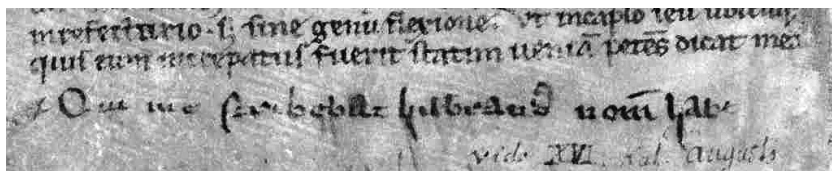 in refectorio. s; sine genu flexione. Vt in capło seu
quis eum increpatus fuerit statim ueniā petēs dicat mea
Qui me scribebat hilbrand' nom̄ habe
vide XVI. kal. Augusti